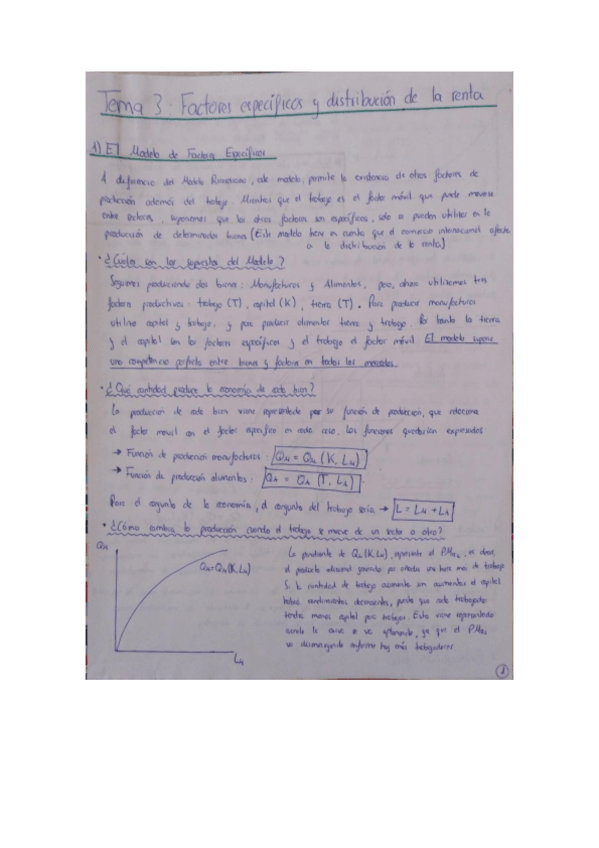 Tema 3: Factores específicos y distribución de la renta
1) El Modelo de Factores Específicos
A diferencia del Modelo Ricardiano, este modelo, permite la existencia de otros factores de
producción además del trabajo. Mientras que el trabajo es el factor móvil que puede moverse
entre sectores, suponemos que los otros factores son específicos, solo se pueden utilizar en la
producción de determinados bienes (Este modelo tiene en cuenta que el comercio internacional afecta
a la distribución de la renta)
• ¿Cuáles son los supuestos del Modelo?
Seguimos produciendo dos bienes: Manufacturas y Alimentos, pero, ahora utilizamos tres
factores productivos: trabajo (T), capital (K), tierra (T). Para producir manufacturas
utilizo capital y trabajo, y para producir alimentos tierra y trabajo. Por tanto la tierra
y el capital son los factores específicos y el trabajo el factor móvil. El modelo supone
una competencia perfecta entre bienes y factores en todos los mercados.
• ¿Qué cantidad produce la economía de cada bien?
La producción de cada bien viene representada por su función de producción, que relaciona
el factor móvil con el factor específico en cada caso. Las funciones quedarían expresadas
→ Función de producción manufacturas: QM = QM (K, LM)
→ Función de producción alimentos: QA = QA (T, LA)
Para el conjunto de la economía, el conjunto del trabajo sería → L = LM + LA
• ¿Cómo cambia la producción cuando el trabajo se mueve de un sector a otro?
QM
QM=QM(K,LM)
LM
La pendiente de QM(K,LM), representa el PMgL, es decir,
el producto adicional generado por añadir una hora más de trabajo
Si la cantidad de trabajo aumenta sin aumentar el capital
habrá rendimientos decrecientes, puesto que cada trabajador
tendrá menos capital para trabajar. Esto viene representado
cuando la curva se va aplanando, ya que el PMgL
va disminuyendo conforme hay más trabajadores.
1